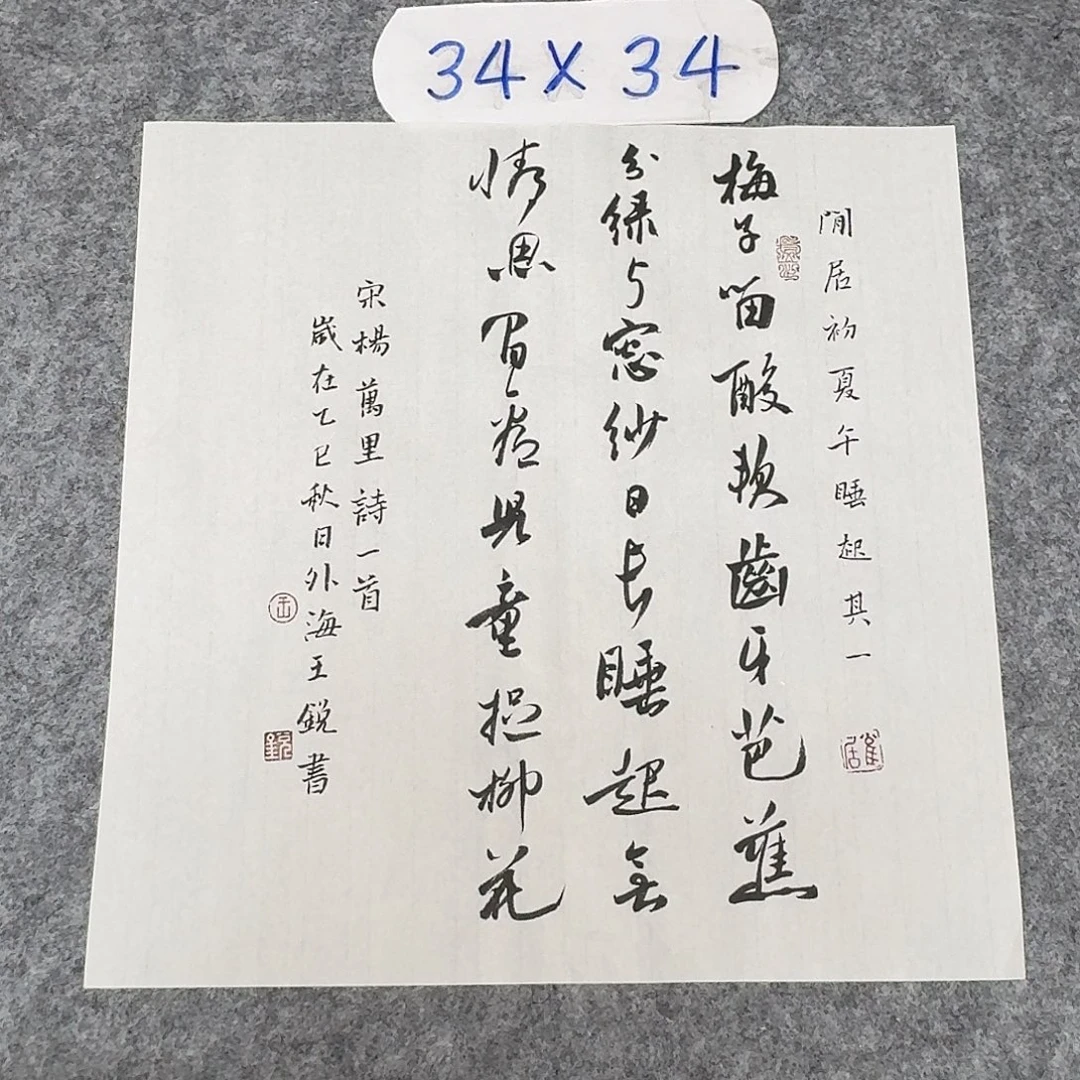 34 X 34
閒居初夏午睡起其一
梅子留酸軟齒牙芭蕉
分緑与窓紗日長睡起無
情思閒看兒童捉柳花
宋楊萬里詩一首
歲在乙巳秋日外海王鋭書